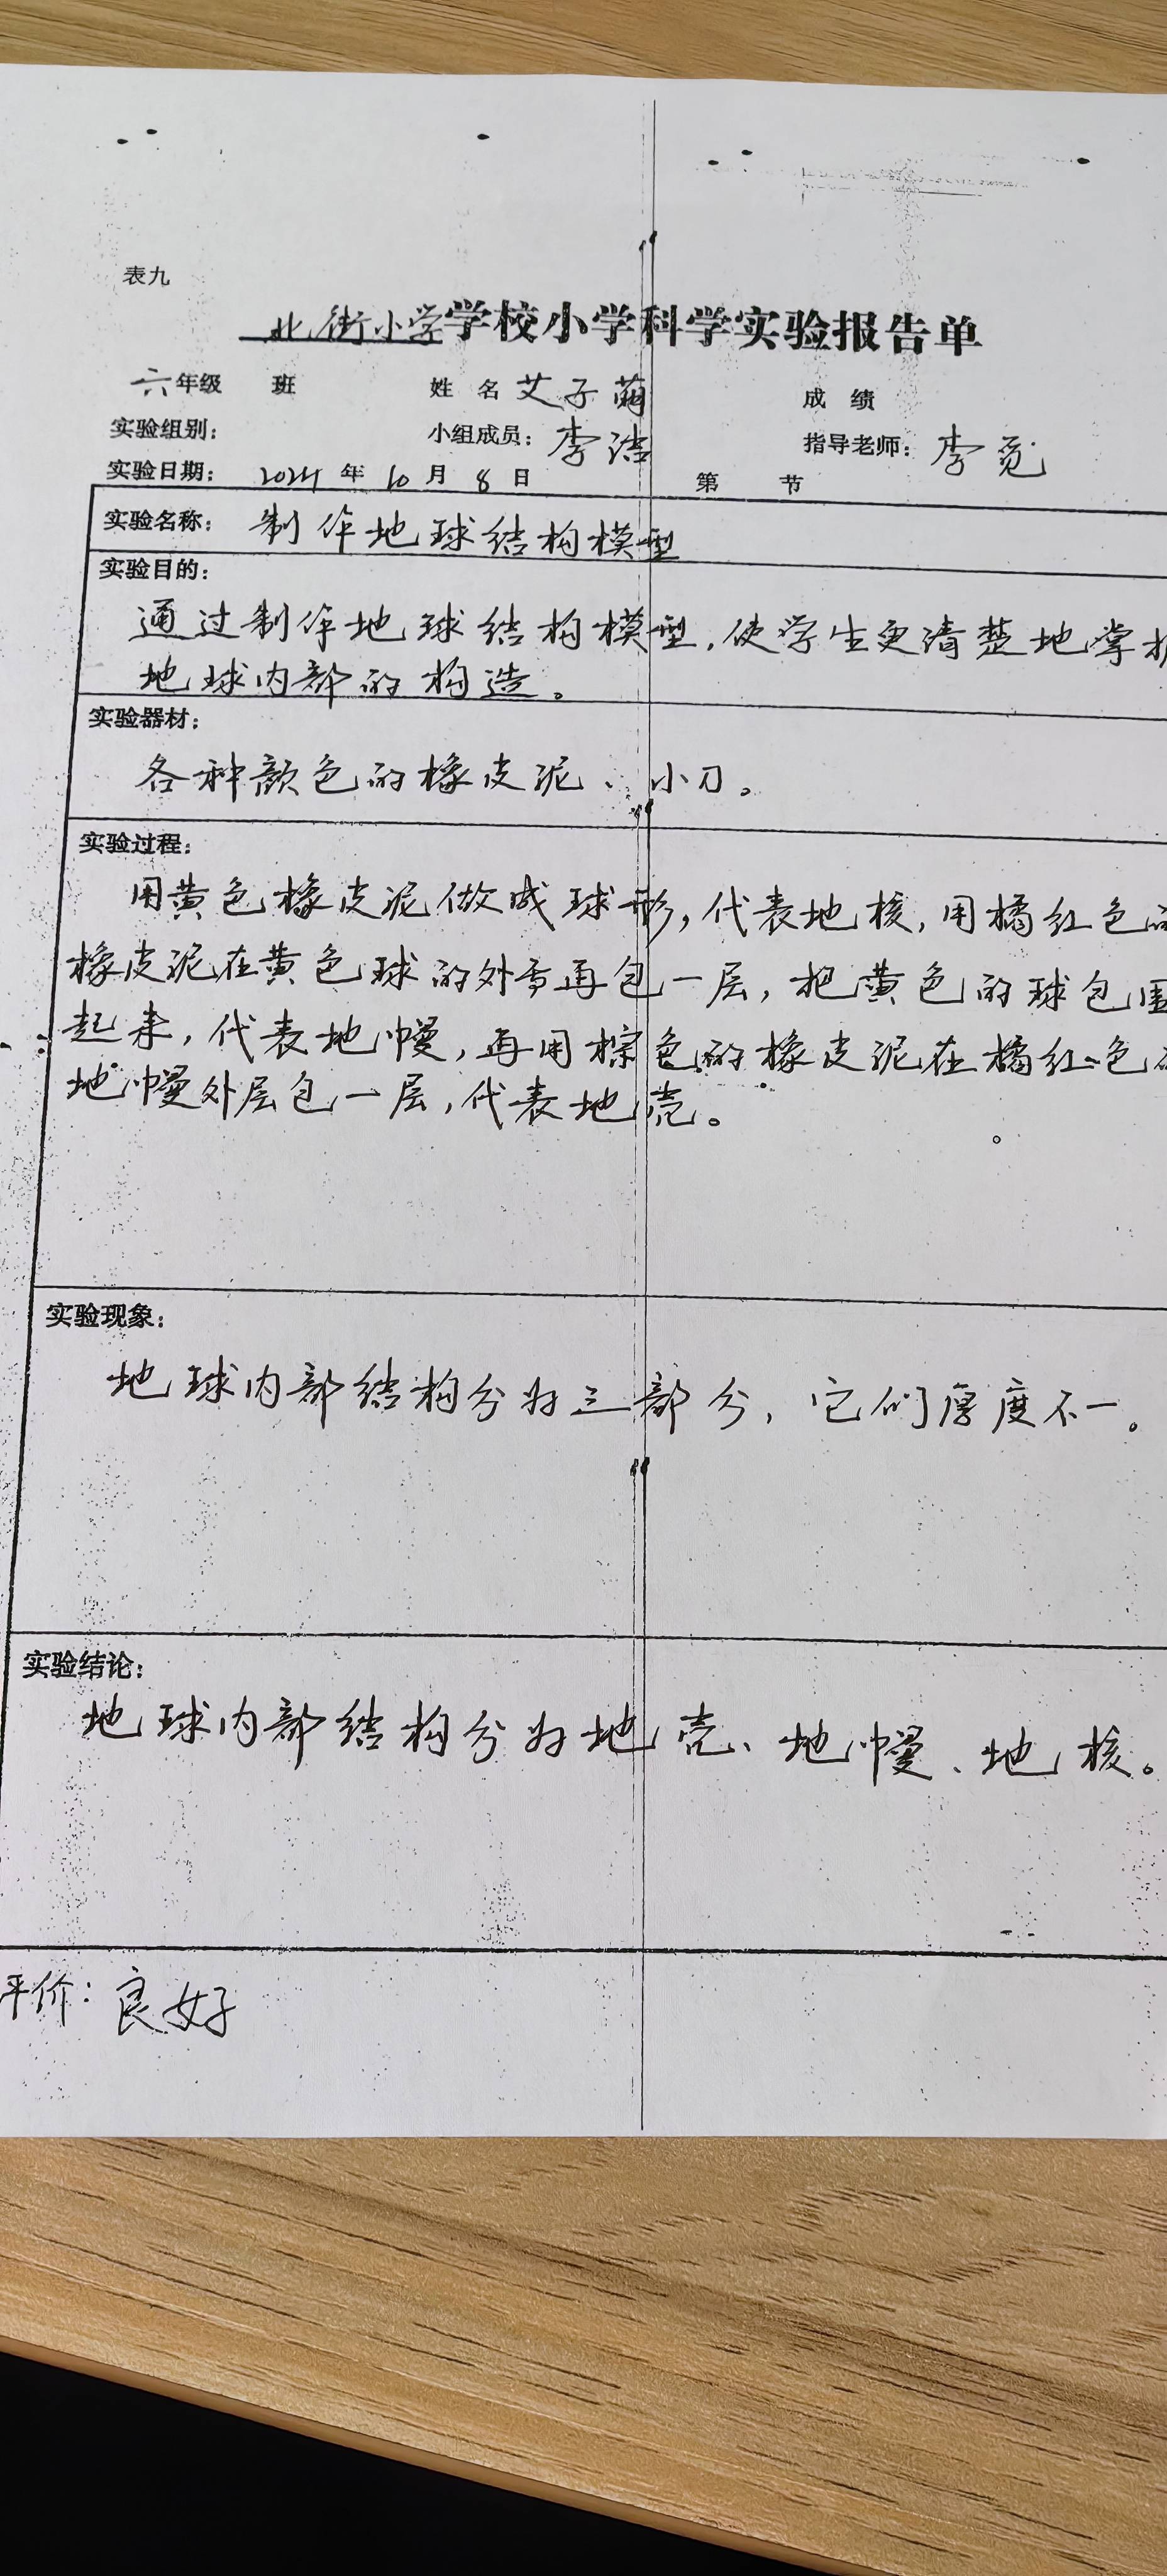 表九
北街小学学校小学科学实验报告单
六年级 班 姓名 艾子萌 成绩
实验组别： 小组成员：李洁 指导老师：李觅
实验日期： 2024年10月8日 第 节
实验名称： 制作地球结构模型
实验目的：
通过制作地球结构模型，使学生更清楚地掌
地球内部的构造。
实验器材：
各种颜色的橡皮泥、小刀。
实验过程：
用黄色橡皮泥做成球形，代表地核，用橘红色的
橡皮泥在黄色球的外面再包一层，把黄色的球包围
起来，代表地幔，再用棕色的橡皮泥在橘红色
地幔外层包一层，代表地壳。
实验现象：
地球内部结构分为三部分，它们厚度不一。
实验结论：
地球内部结构分为地壳、地幔、地核。
评价：良好